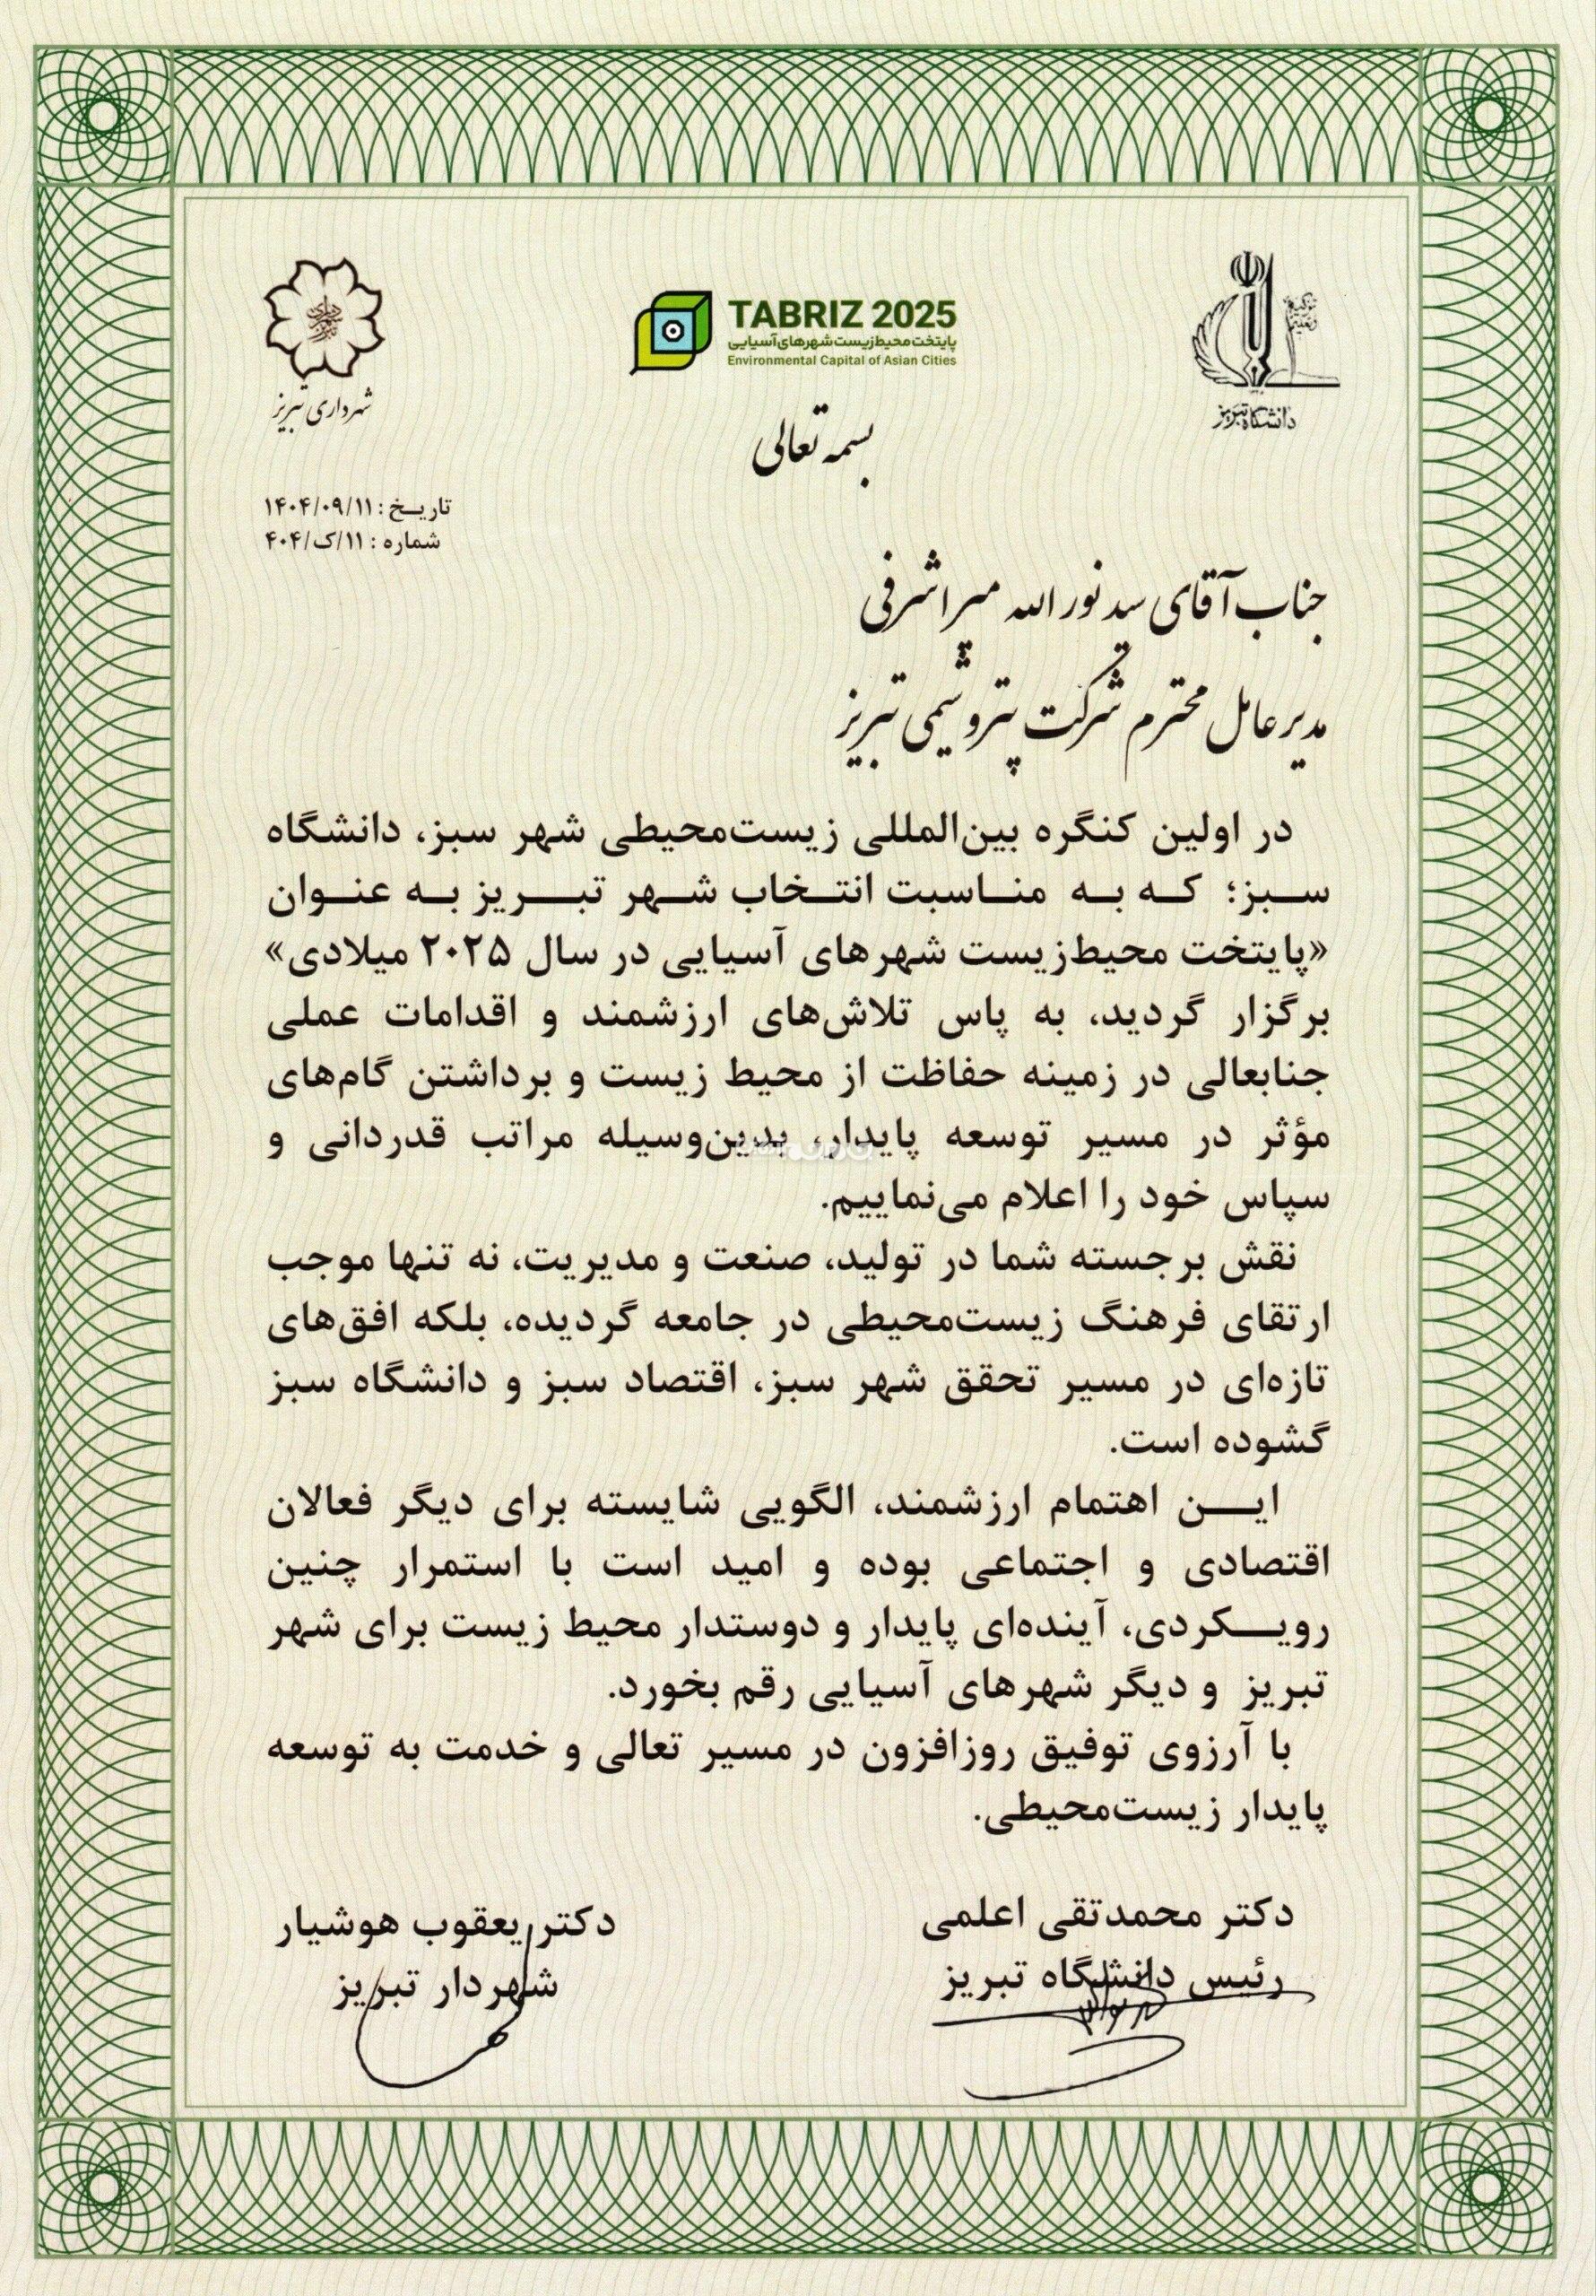 شهرداری تبریز
TABRIZ 2025
پایتخت محیط‌زیست شهرهای آسیایی
Environmental Capital of Asian Cities
دانشگاه تبریز
بسمه تعالی
تاریخ : ۱۴۰۴/۰۹/۱۱
شماره : ۱۱/ک/۴۰۴
جناب آقای سید نورالله میراشرفی
مدیرعامل محترم شرکت پتروشیمی تبریز
در اولین کنگره بین‌المللی زیست‌محیطی شهر سبز، دانشگاه
سبز؛ که به مناسبت انتخاب شهر تبریز به عنوان
«پایتخت محیط‌زیست شهرهای آسیایی در سال ۲۰۲۵ میلادی»
برگزار گردید، به پاس تلاش‌های ارزشمند و اقدامات عملی
جنابعالی در زمینه حفاظت از محیط زیست و برداشتن گام‌های
مؤثر در مسیر توسعه پایدار، بدین‌وسیله مراتب قدردانی و
سپاس خود را اعلام می‌نماییم.
نقش برجسته شما در تولید، صنعت و مدیریت، نه تنها موجب
ارتقای فرهنگ زیست‌محیطی در جامعه گردیده، بلکه افق‌های
تازه‌ای در مسیر تحقق شهر سبز، اقتصاد سبز و دانشگاه سبز
گشوده است.
این اهتمام ارزشمند، الگویی شایسته برای دیگر فعالان
اقتصادی و اجتماعی بوده و امید است با استمرار چنین
رویکردی، آینده‌ای پایدار و دوستدار محیط زیست برای شهر
تبریز و دیگر شهرهای آسیایی رقم بخورد.
با آرزوی توفیق روزافزون در مسیر تعالی و خدمت به توسعه
پایدار زیست‌محیطی.
دکتر محمدتقی اعلمی
رئیس دانشگاه تبریز
دکتر یعقوب هوشیار
شهردار تبریز